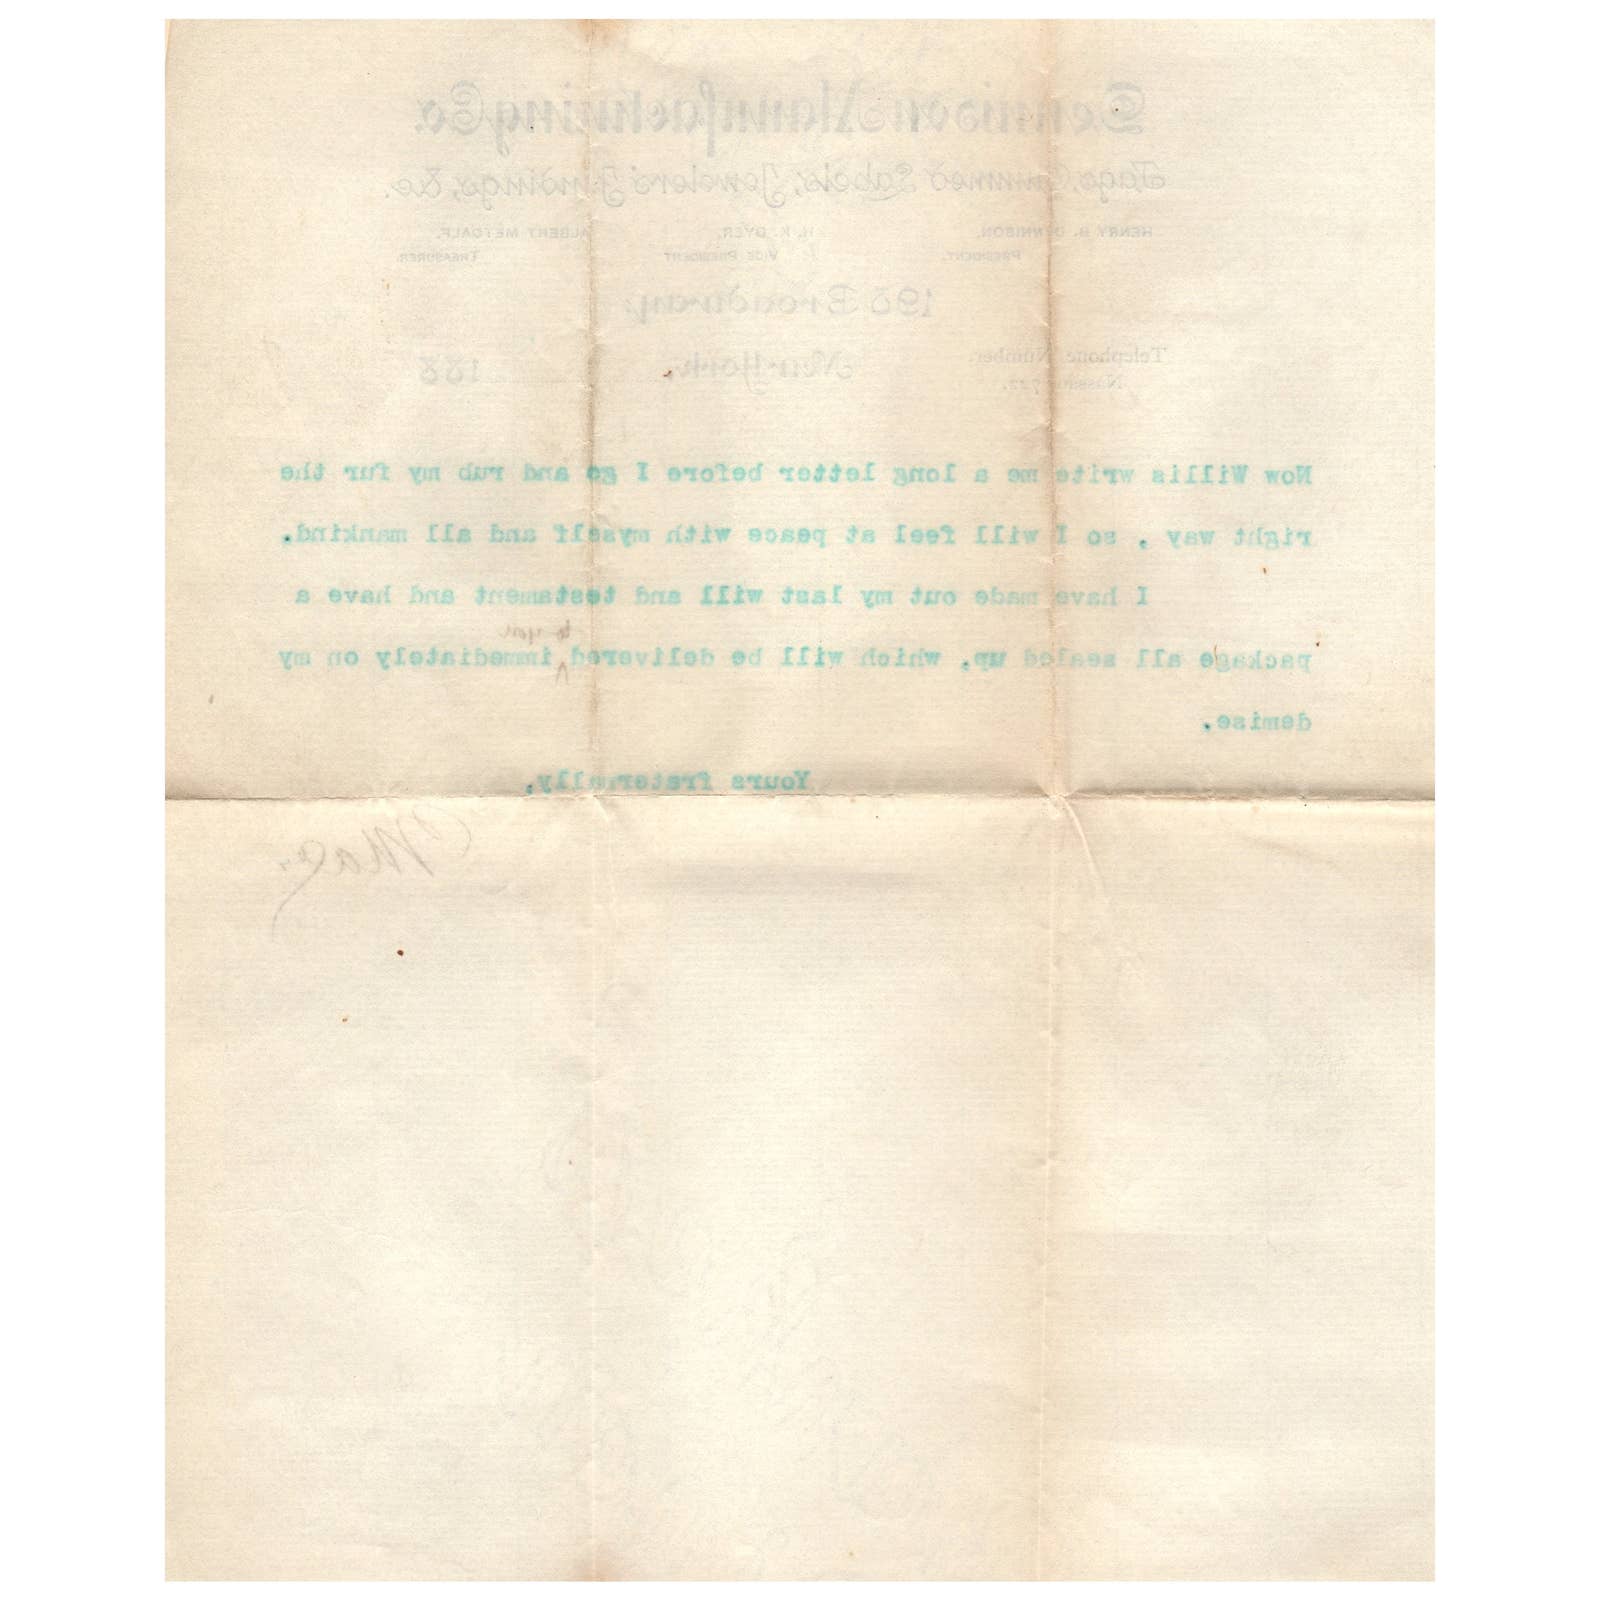 Dennison Manufacturing Co.
Tags, Gummed Labels, Jewelers' Findings, &c.
HENRY B. DENNISON, H. K. DYER, ALBERT METCALF,
PRESIDENT. VICE PRESIDENT TREASURER.
198 Broadway,
Telephone Number New York, 188
Nassau 722.
Now Willis write me a long letter before I go and rub my fur the
right way , so I will feel at peace with myself and all mankind.
I have made out my last will and testament and have a
to you
package all sealed up, which will be delivered immediately on my
demise.
Yours fraternally,